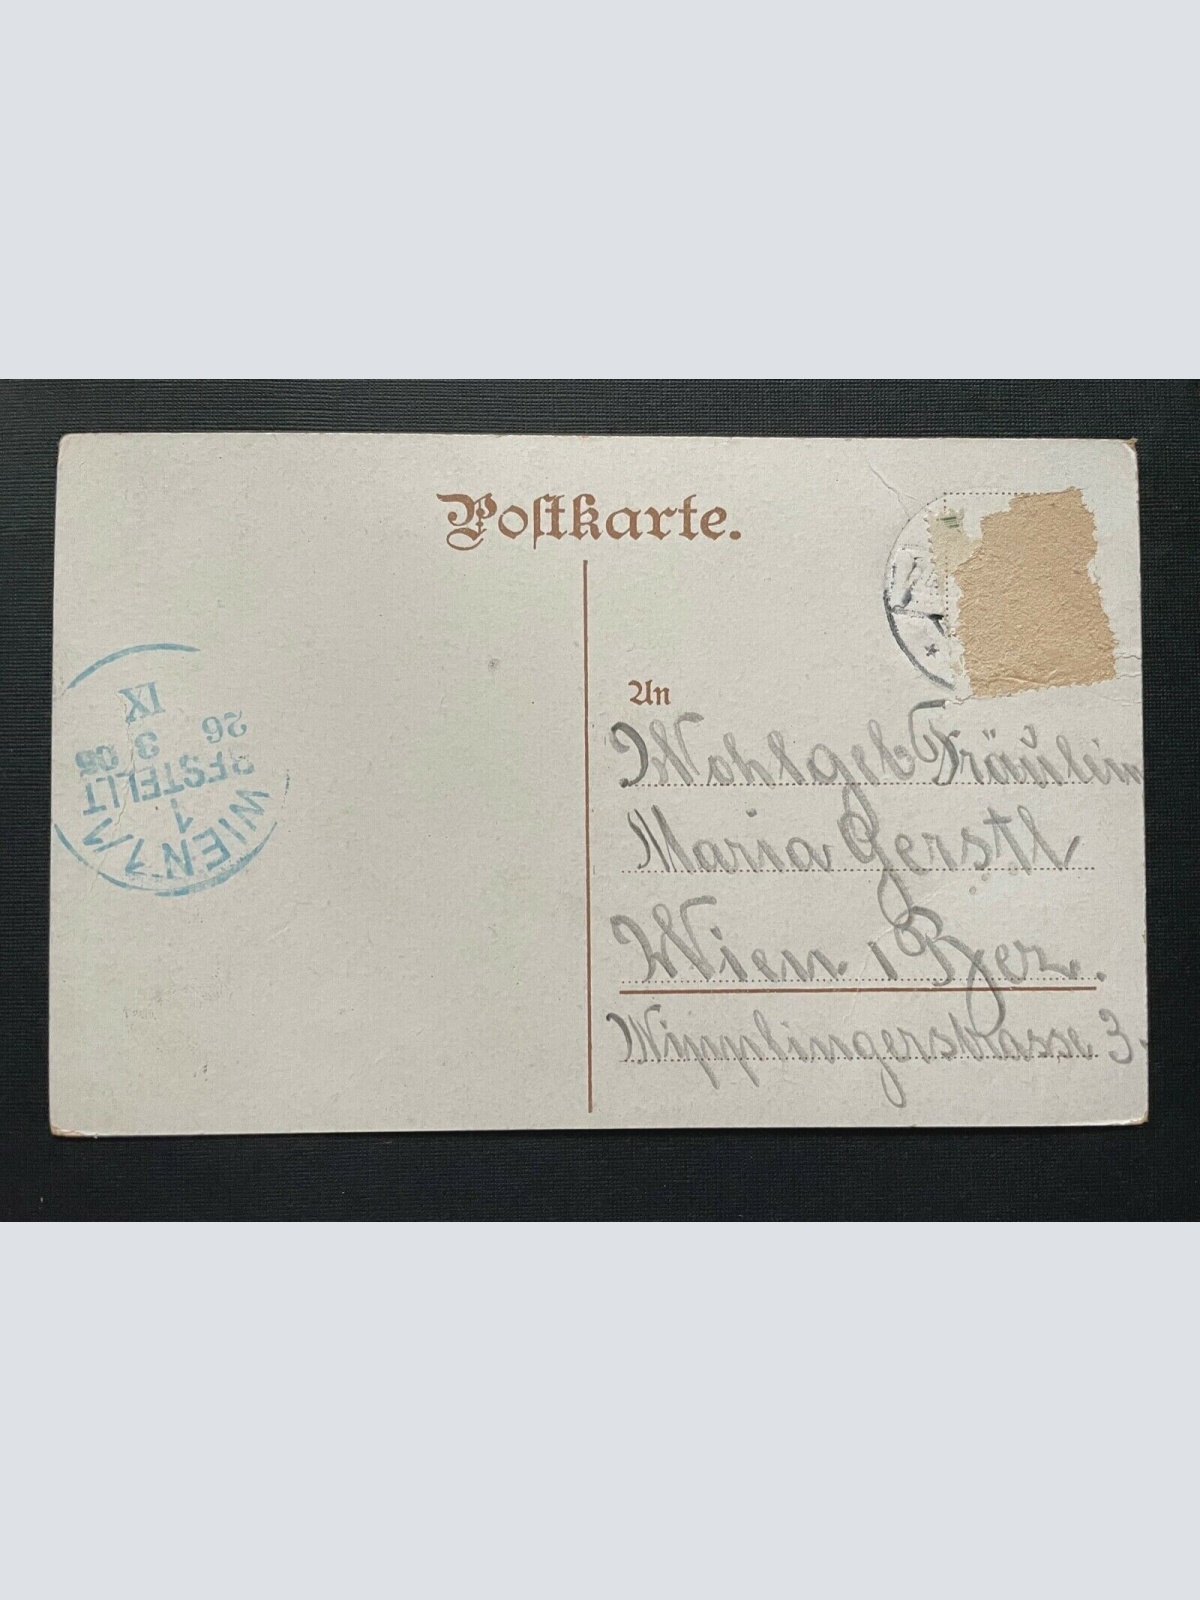 Postkarte.
An
Wohlgeb Fräulein
Maria Gerstl
Wien 1 Bez.
Wipplingerstrasse 3.
WIEN 1/1
1
BESTELLT
3 05
26
IX